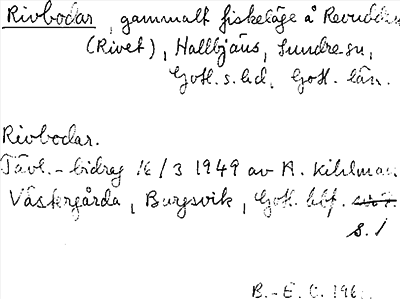 Rivbodar, gammalt fiskeläge å Revudden
(Rivet), Hallbjäns, Sundre sn,
Gotl. s. hd, Gotl. län.
Rivbodar.
Tävl.-bidrag 16/3 1949 av A. Kihlman
Västergårda, Burgsvik, Gotl. bbf.
s. 1
B.-E. O. 196